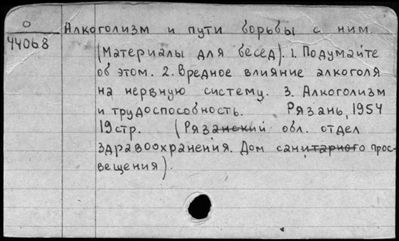 О
44068
Алкоголизм и пути борьбы с ним
(Материалы для бесед). 1. Подумайте
об этом. 2. Вредное влияние алкоголя
на нервную систему. 3. Алкоголизм
и трудоспособность. Рязань, 1954
19стр. (Рязанский обл. отдел
здравоохранения. Дом санитарного прос-
вещения).